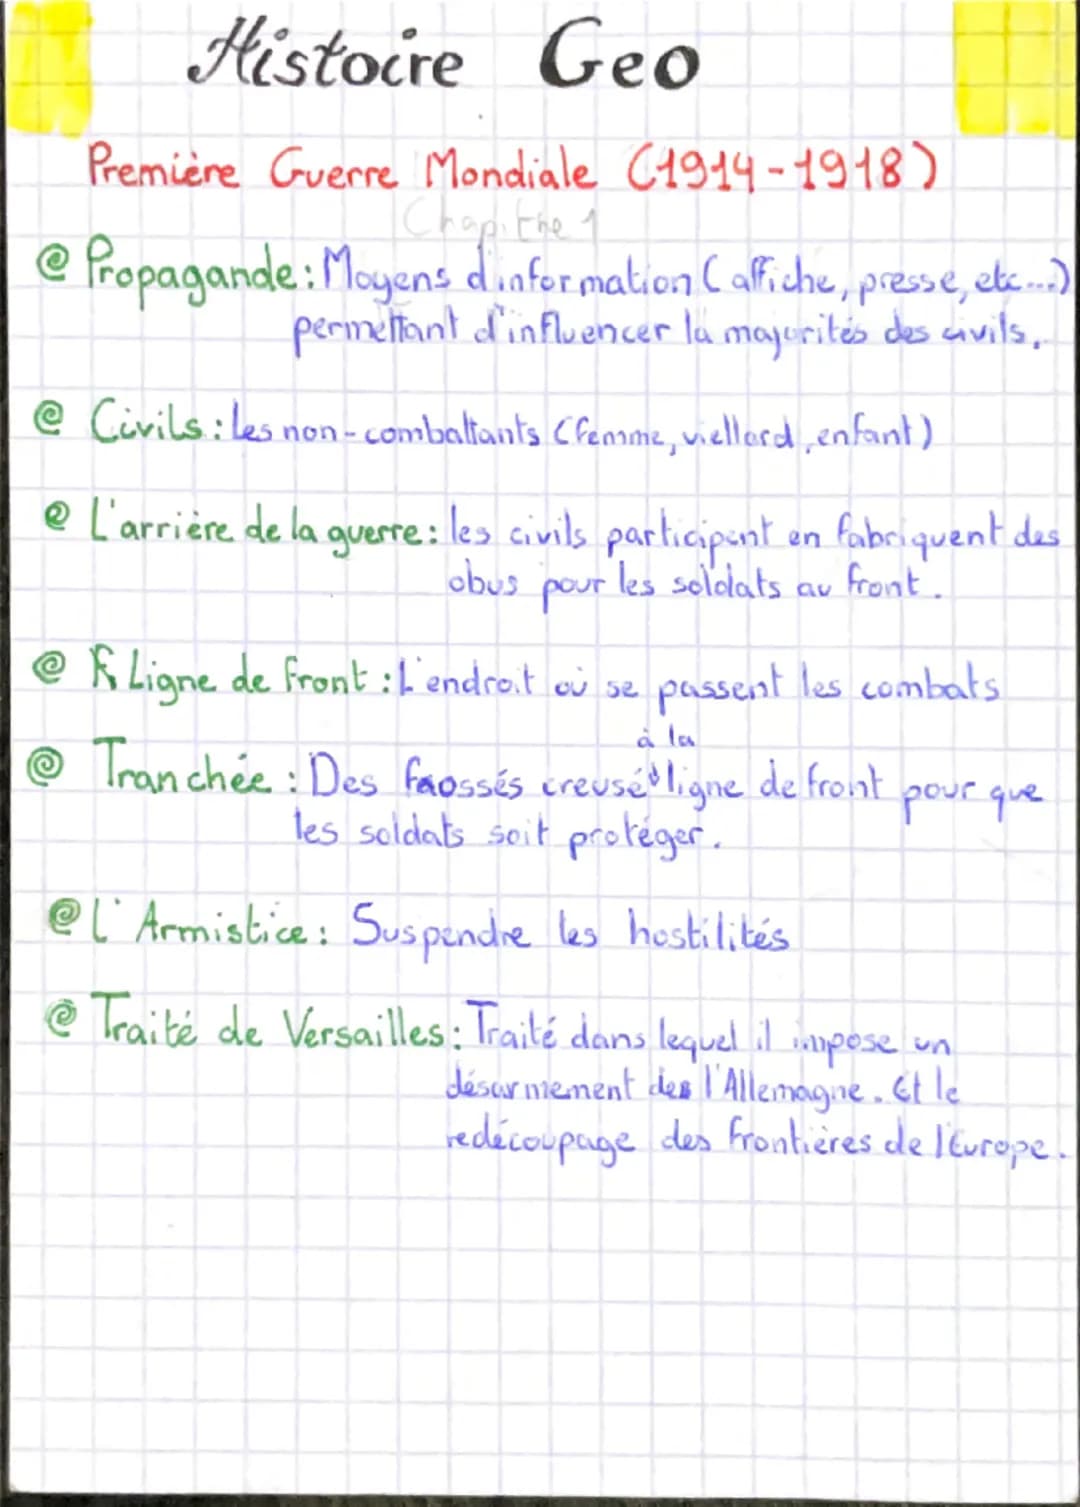 Histoire Geo
Première Guerre Mondiale (1914-1918)
Chapitre 1
@ Propagande : Moyens d'information (affiche, presse, etc...)
permettant d'influencer la majorités des civils.
@ Civils : les non-combattants (femme, viellard, enfant)
@ L'arrière de la guerre : les civils participent en fabriquent des
obus pour les soldats au front.
@ Ligne de front : L'endroit où se passent les combats
à la
@ Tranchée : Des faossés creusé ligne de front pour que
les soldats soit protéger.
@ L'Armistice : Suspendre les hostilités
@ Traité de Versailles : Traité dans lequel il impose un
désarmement des l'Allemagne. Et le
redécoupage des frontières de l'Europe.